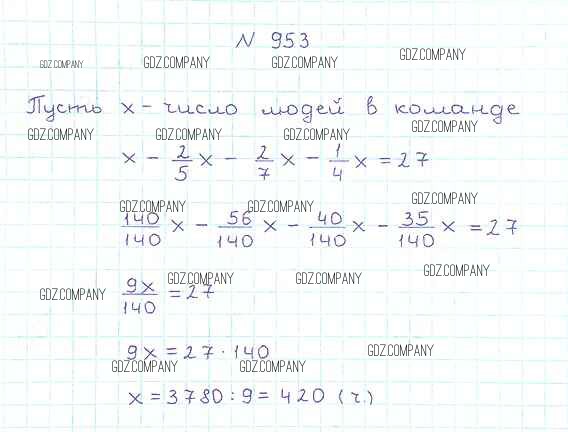 N 953
GDZ.COMPANY GDZ.COMPANY GDZ.COMPANY GDZ.COMPANY
Пусть x - число людей в команде
GDZ.COMPANY GDZ.COMPANY GDZ.COMPANY GDZ.COMPANY
x - 2/5 x - 2/7 x - 1/4 x = 27
GDZ.COMPANY GDZ.COMPANY GDZ.COMPANY
140/140 x - 56/140 x - 40/140 x - 35/140 x = 27
GDZ.COMPANY GDZ.COMPANY GDZ.COMPANY GDZ.COMPANY
9x/140 = 27
9x = 27 · 140
GDZ.COMPANY GDZ.COMPANY GDZ.COMPANY
x = 3780 : 9 = 420 (ч.)